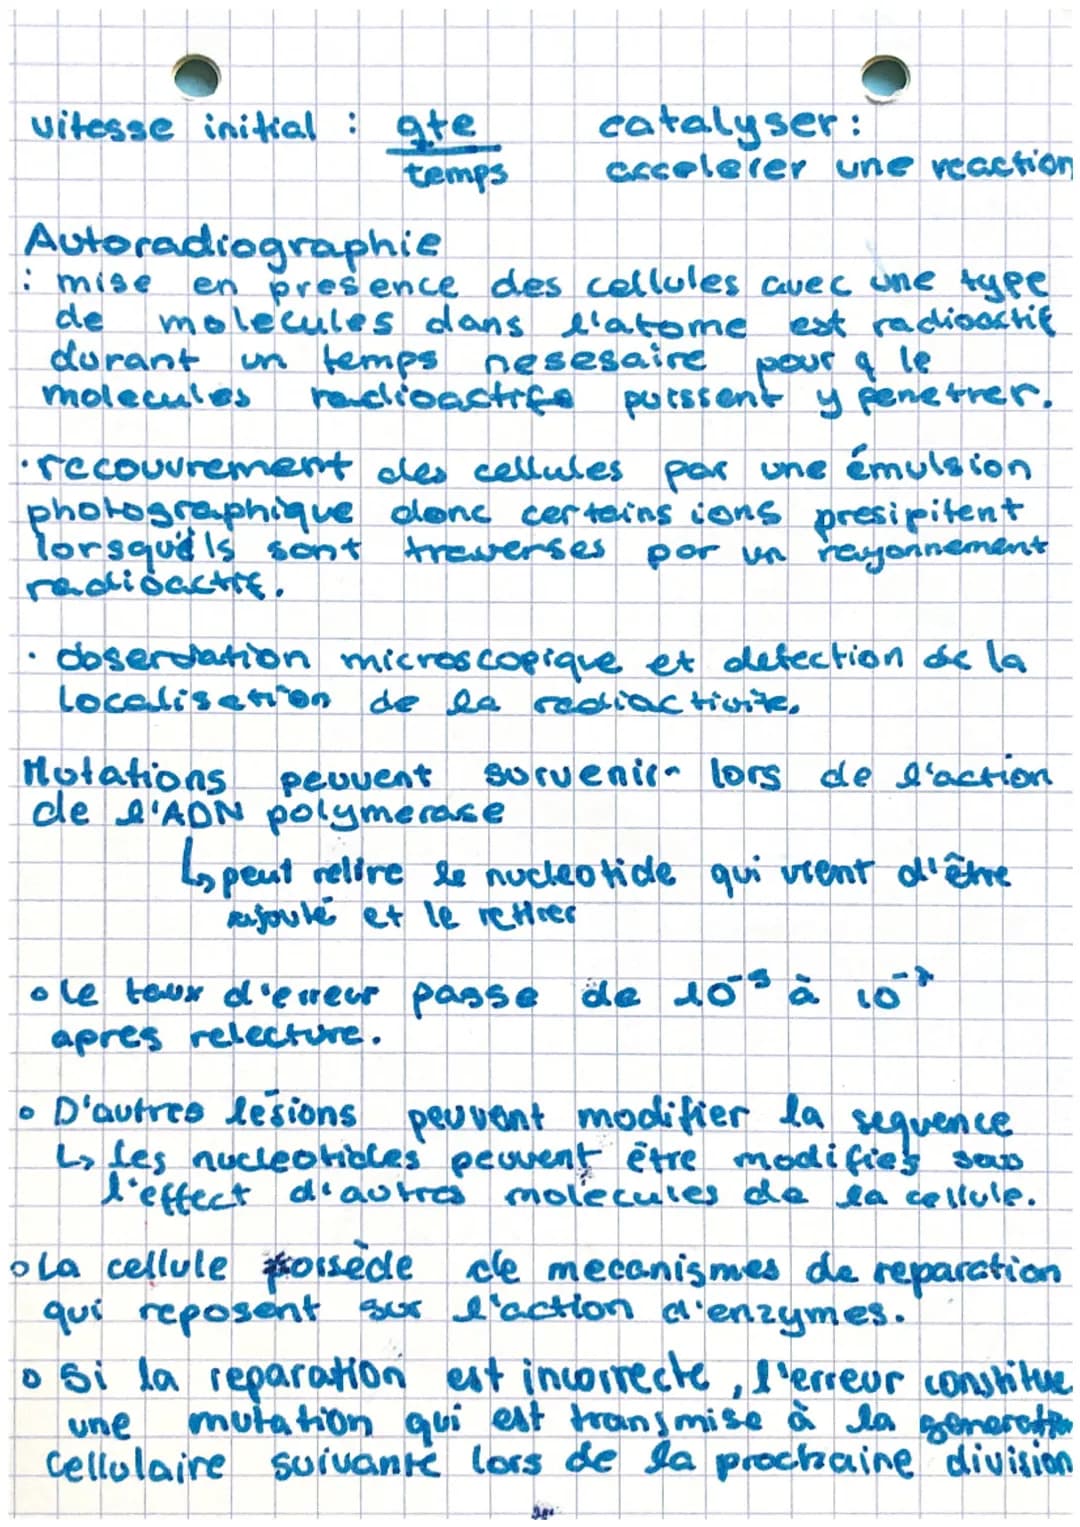 vitesse initial : qte / temps
catalyser :
accelerer une reaction
Autoradiographie
: mise en presence des cellules avec une type
de molecules dans l'atome est radioactif
durant un temps nesesaire pour q le
molecules radioactifs puissent y penetrer.
· recouvrement des cellules par une émulsion
photographique donc certains ions presipitent
lorsqu'ils sont traverses par un rayonnement
radioactif.
· observation microscopique et detection de la
localisation de la radiactivite.
Mutations peuvent survenir lors de l'action
de l'ADN polymerase
↳ peut relire le nucleotide qui vient d'être
rajouté et le retirer
• le taux d'erreur passe de 10⁻⁵ à 10⁻⁷
apres relecture.
• D'autres lésions peuvent modifier la sequence
↳ les nucleotides peuvent être modifies sous
l'effect d'autres molecules de la cellule.
• La cellule possède de mecanismes de reparation
qui reposent sur l'action d'enzymes.
• Si la reparation est incorrecte, l'erreur constitue
une mutation qui est transmise à la generation
cellulaire suivante lors de la prochaine division